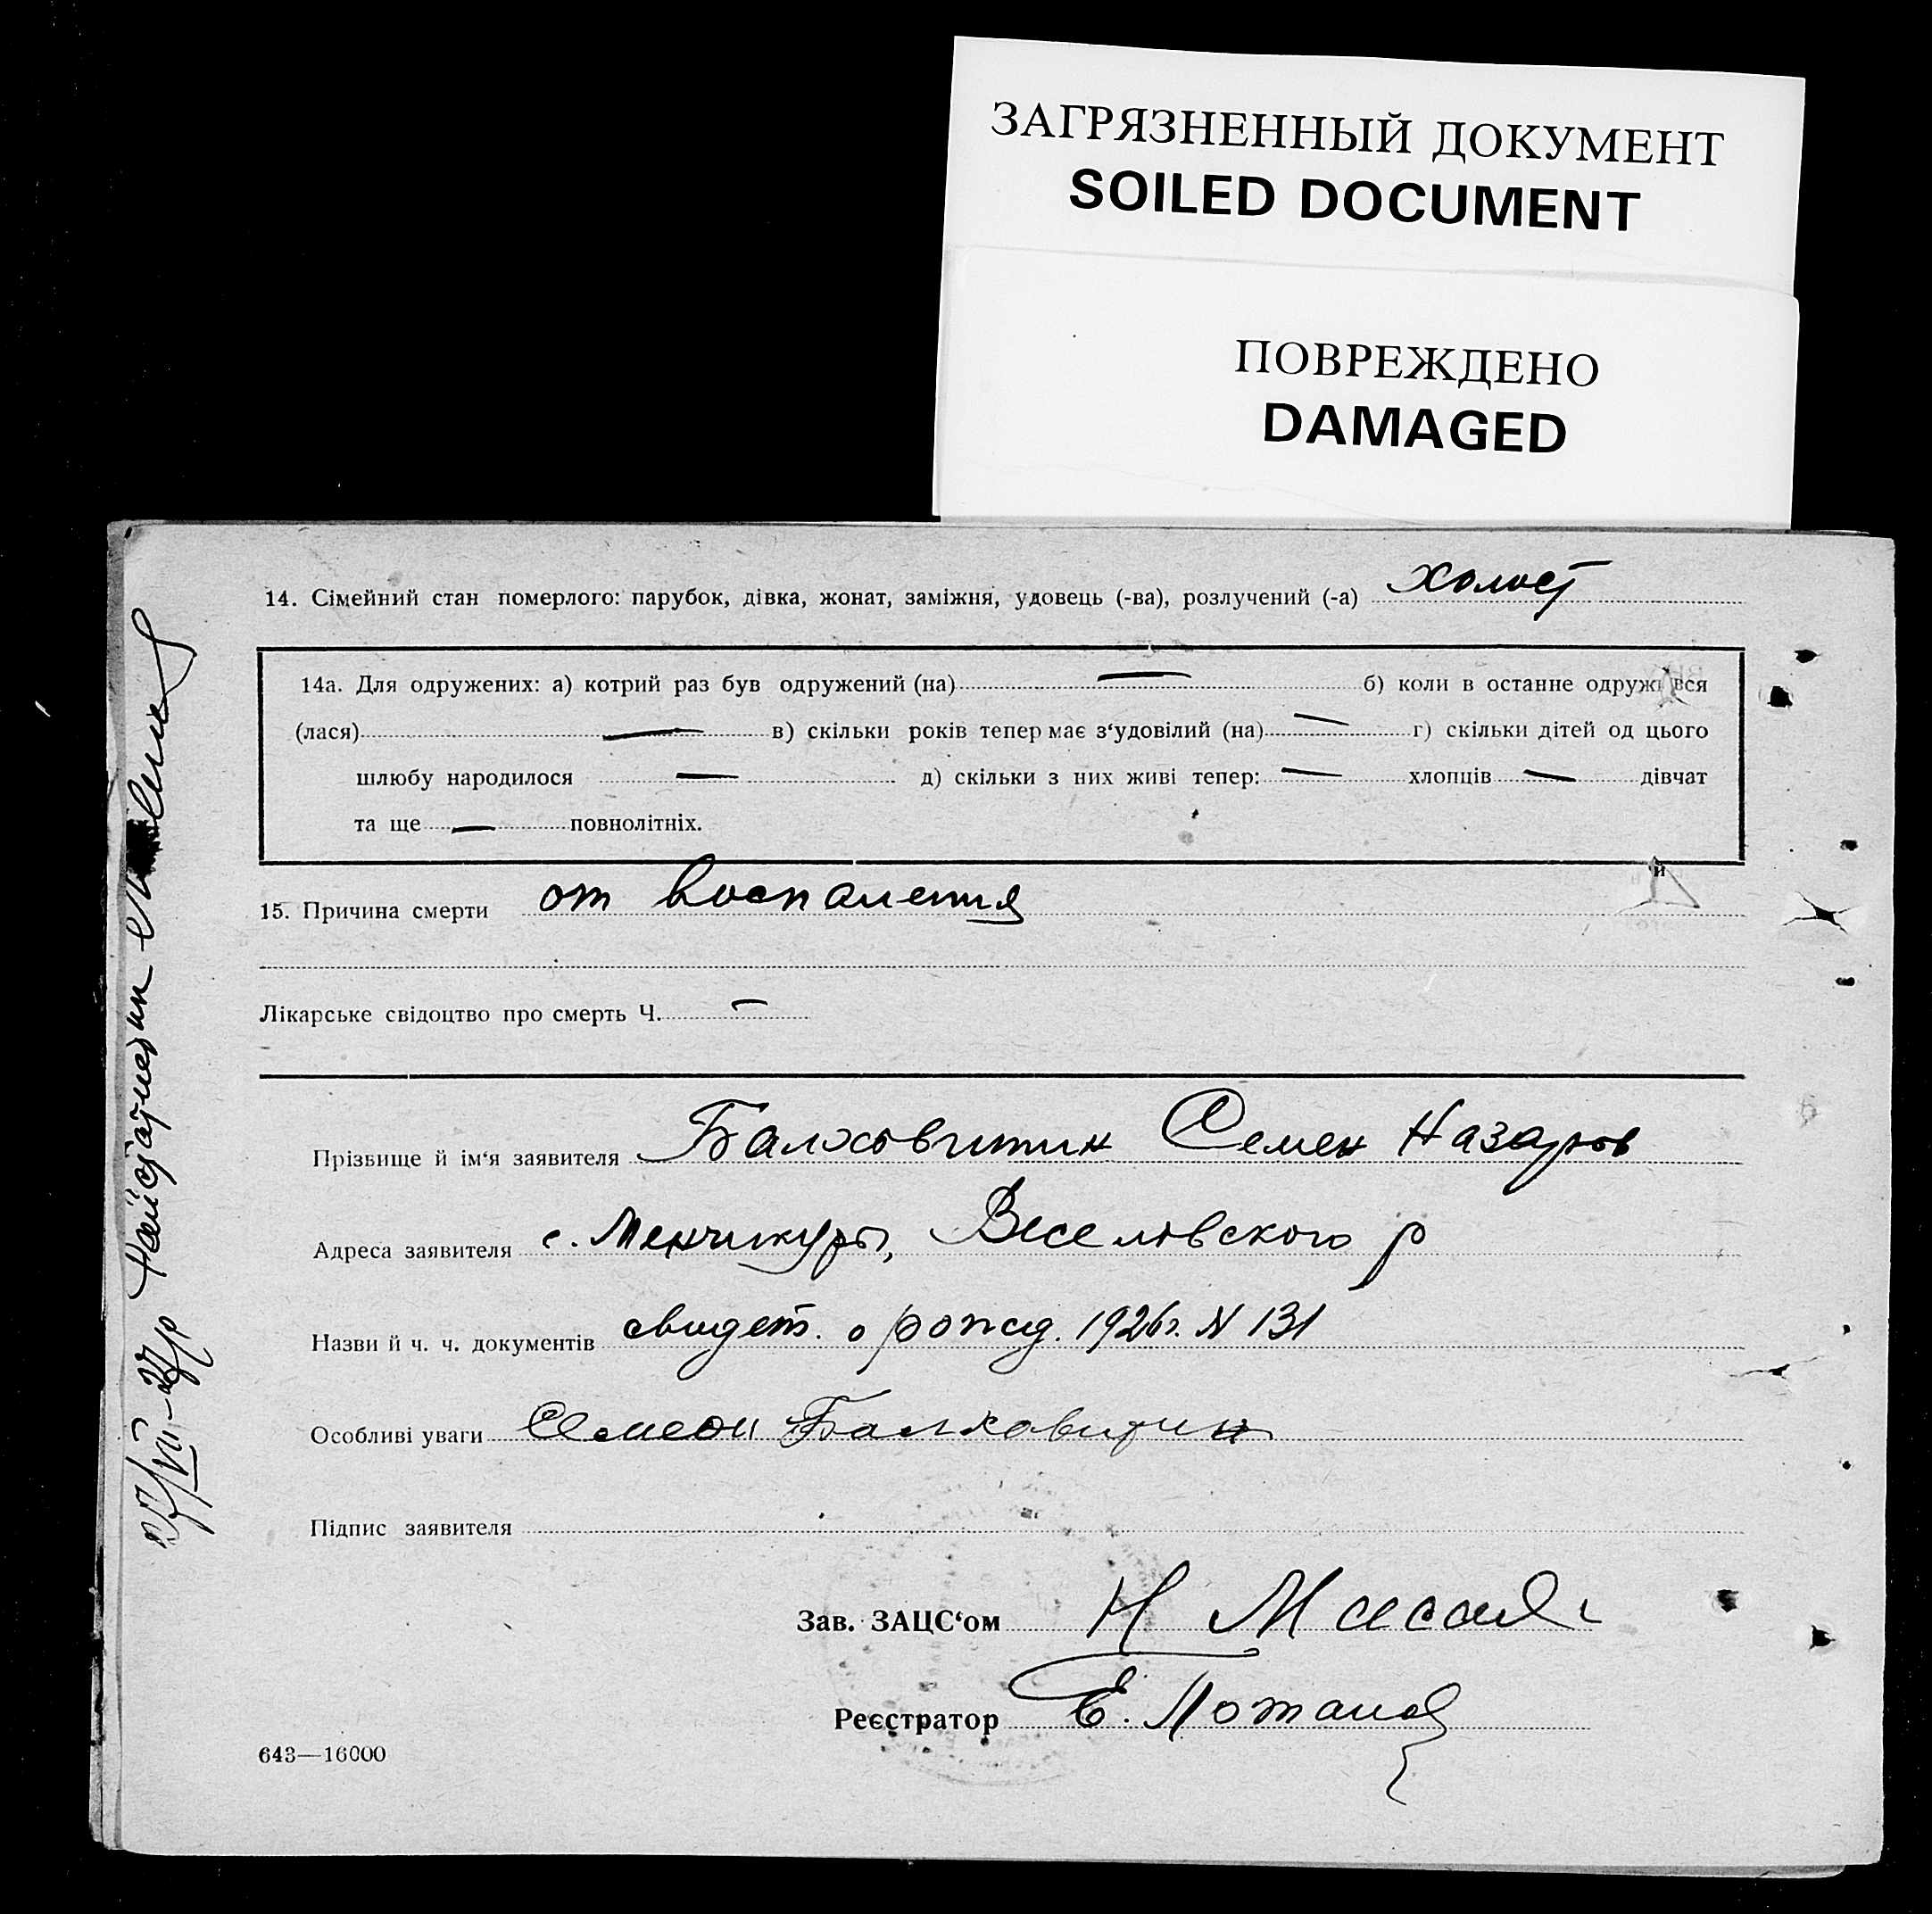 ЗАГРЯЗНЕННЫЙ ДОКУМЕНТ
SOILED DOCUMENT
ПОВРЕЖДЕНО
DAMAGED
14. Сімейний стан померлого: парубок, дівка, жонат, заміжня, удовець (-ва), розлучений (-а) холост
14а. Для одружених: а) котрий раз був одружений (на) — б) коли в останнє одружився
(лася) — в) скільки років тепер має з‘удовілий (на) — г) скільки дітей од цього
шлюбу народилося — д) скільки з них живі тепер: — хлопців — дівчат
та ще — повнолітніх.
15. Причина смерти от воспаления
Лікарське свідоцтво про смерть Ч. —
Прізвище й ім‘я заявителя Балховитин Семен Назаров
Адреса заявителя с. Менчикуры, Веселовского р
Назви й ч. ч. документів свидет. о рожд. 1926г. N 131
Особливі уваги Семеон Балховитин
Підпис заявителя
Зав. ЗАЦС‘ом Н
Реєстратор Е.
643—16000
27/VIII